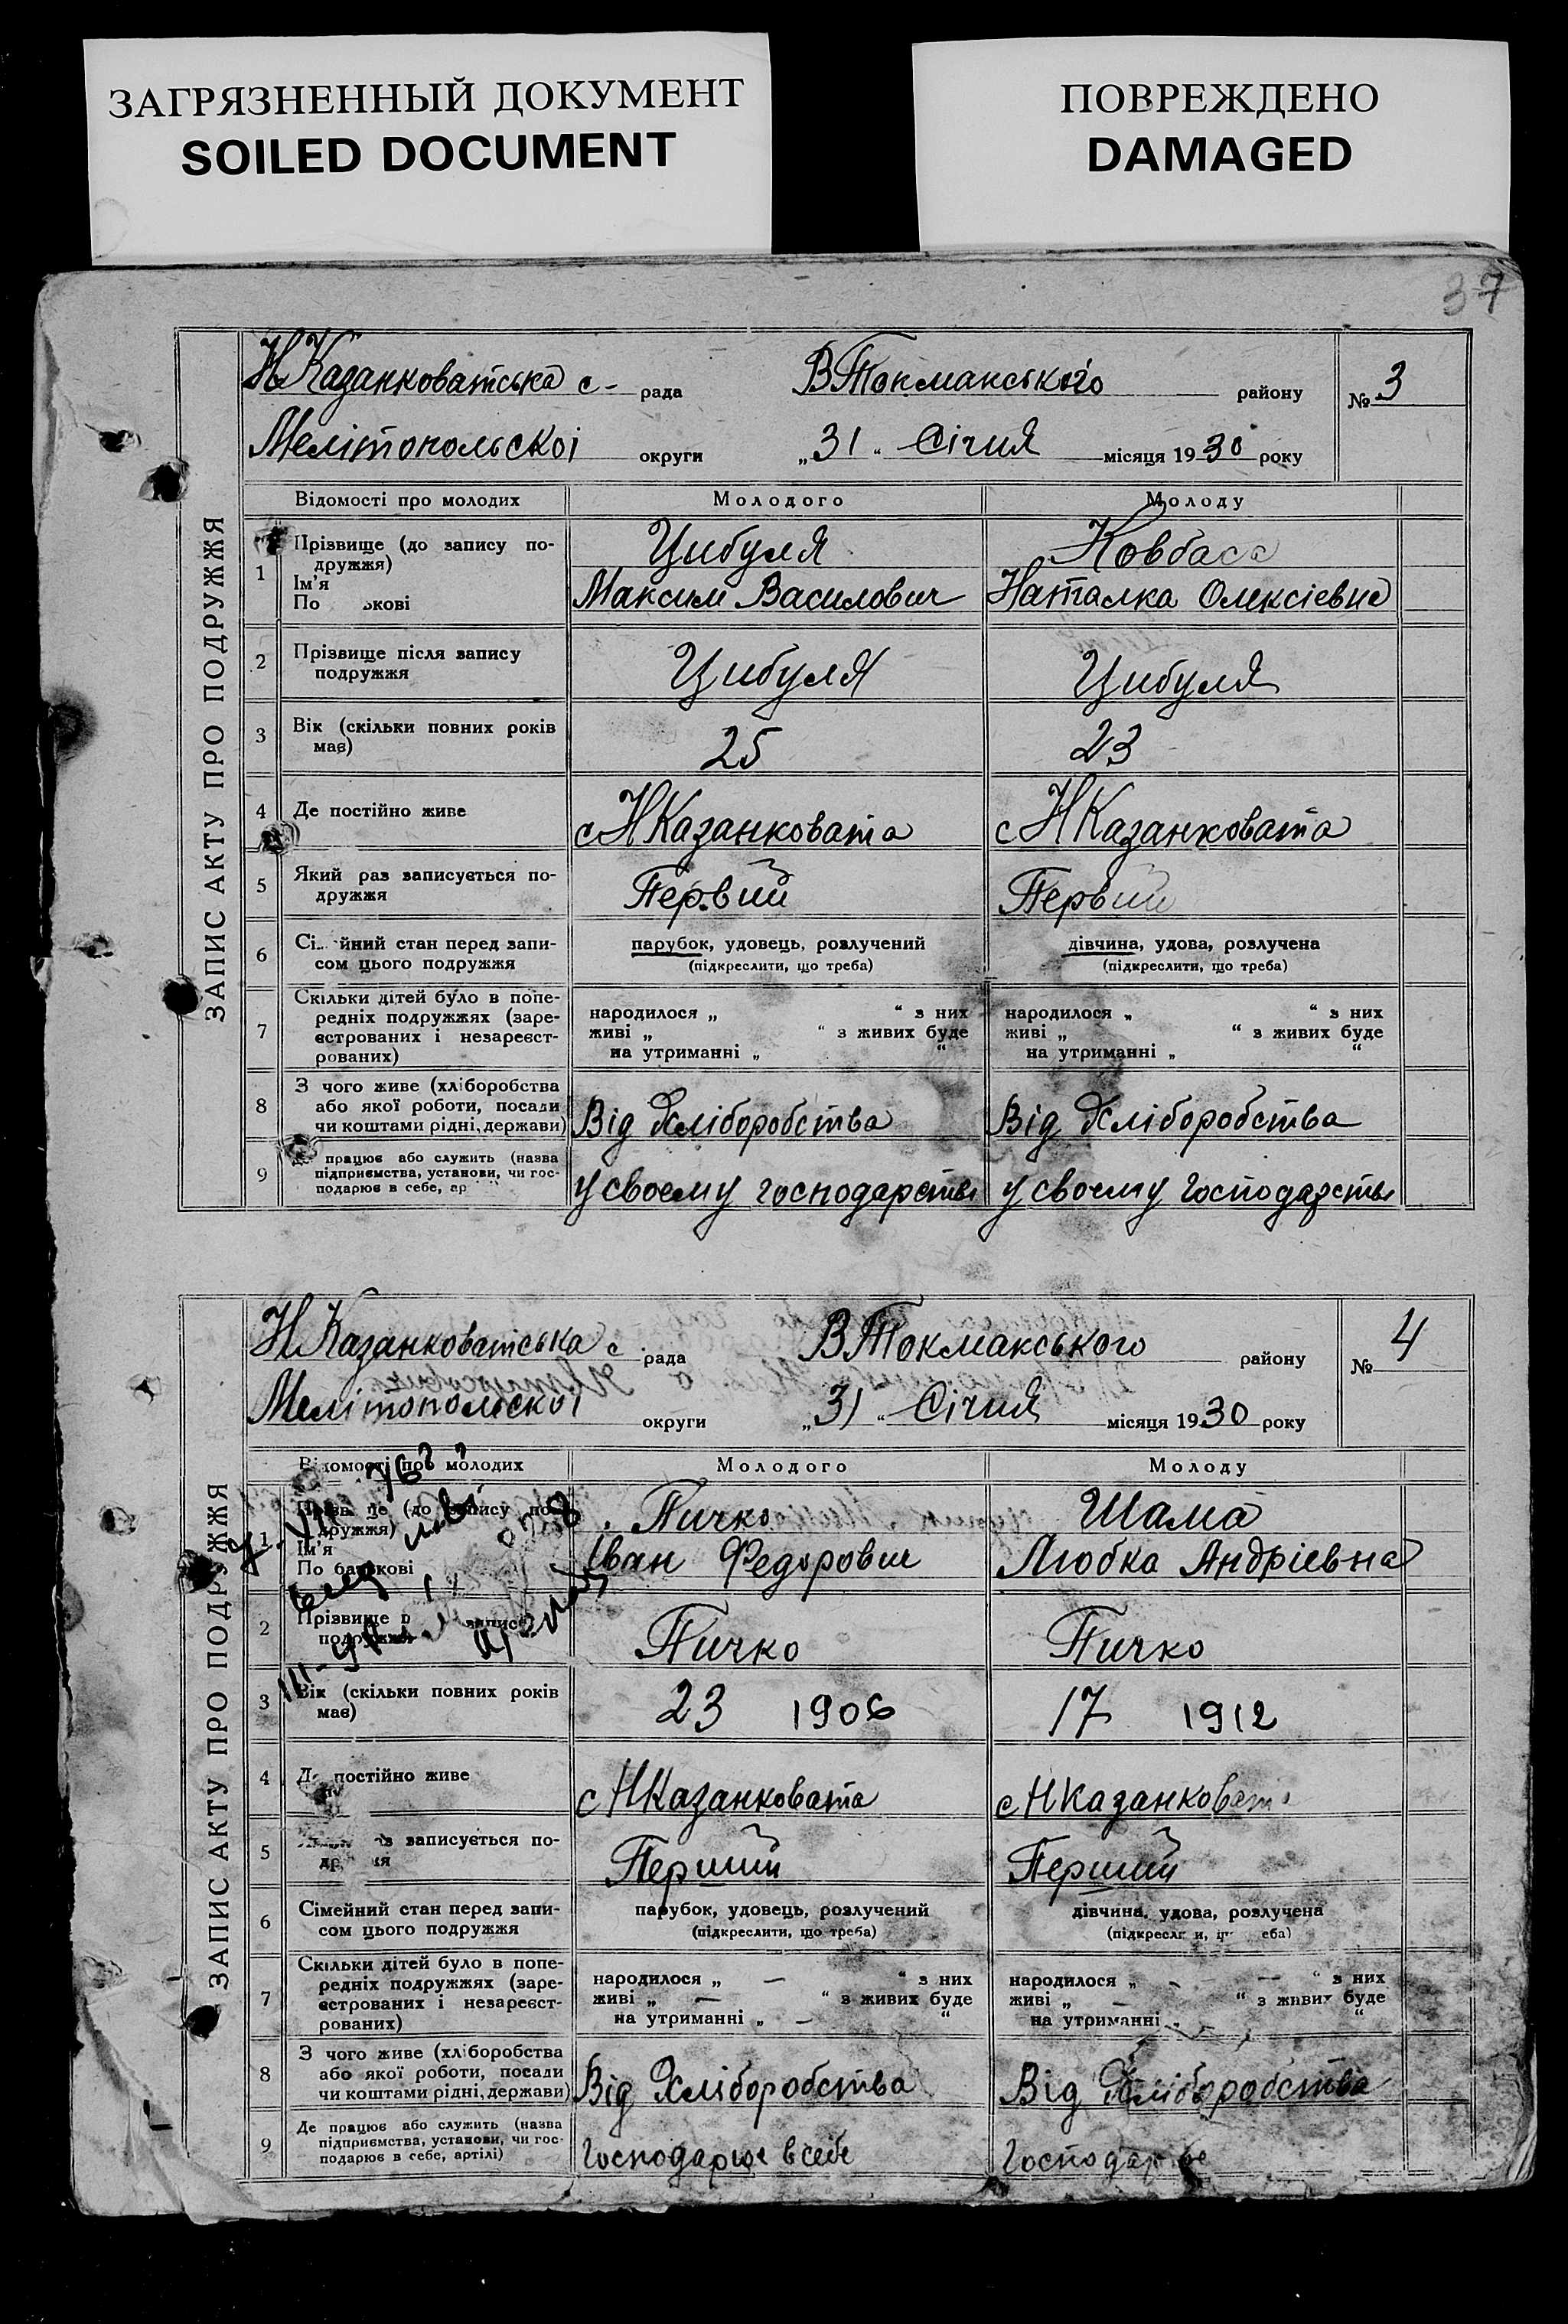 ЗАГРЯЗНЕННЫЙ ДОКУМЕНТ
SOILED DOCUMENT
ПОВРЕЖДЕНО
DAMAGED
37
ЗАПИС АКТУ ПРО ПОДРУЖЖЯ
Н Казанковатська с - рада В Токмакського району № 3
Мелітопольскоі округи „31“ Січня місяця 1930 року
Відомості про молодих Молодого Молоду
1 Прізвище (до запису по- Цибуля Ковбаса
дружжя)
Ім'я Максим Василович Наталка Олексієвна
По ькові
2 Прізвище після запису Цибуля Цибуля
подружжя
3 Вік (скільки повних років 25 23
має)
4 Де постійно живе с Н Казанковата с Н Казанковата
5 Який раз записується по- Первий Первий
дружжя
6 Сі йний стан перед запи- парубок, удовець, розлучений дівчина, удова, розлучена
сом цього подружжя (підкреслити, що треба) (підкреслити, що треба)
7 Скільки дітей було в попе- народилося „ “ з них народилося „ “ з них
редніх подружжях (заре- живі „ “ з живих буде живі „ “ з живих буде
єстрованих і незареєст- на утриманні „ “ на утриманні „ “
рованих)
8 З чого живе (хліборобства Від Хліборобства Від Хліборобства
або якої роботи, посади
чи коштами рідні, держави)
9 працює або служить (назва у своему господарстві у своему господарстві
підприємства, установи, чи гос-
подарює в себе, ар
ЗАПИС АКТУ ПРО ПОДРУЖЖЯ
Н Казанковатська с рада В Токмакського району № 4
Мелітопольскоі округи „31“ Січня місяця 1930 року
Відомості про молодих Молодого Молоду
1 (до запису по- Пичко Шама
дружжя)
Ім'я Іван Федорович Любка Андріевна
По батькові
2 Прізвище запису Пичко Пичко
подружжя
3 Вік (скільки повних років 23 1906 17 1912
має)
4 Де постійно живе с Н Казанковата с Н Казанковата
5 записується по- Перший Перший
6 Сімейний стан перед запи- парубок, удовець, розлучений дівчина, удова, розлучена
сом цього подружжя (підкреслити, що треба) (підкресл и, еба)
7 Скільки дітей було в попе- народилося „ — “ з них народилося „ — “ з них
редніх подружжях (заре- живі „ — “ з живих буде живі „ — “ з живих буде
єстрованих і незареєст- на утриманні „ — “ на утриманні „ “
рованих)
8 З чого живе (хліборобства Від Хліборобства Від Хліборобства
або якої роботи, посади
чи коштами рідні, держави)
9 Де працює або служить (назва Господарює в себе
підприємства, установи, чи гос-
подарює в себе, артілі)